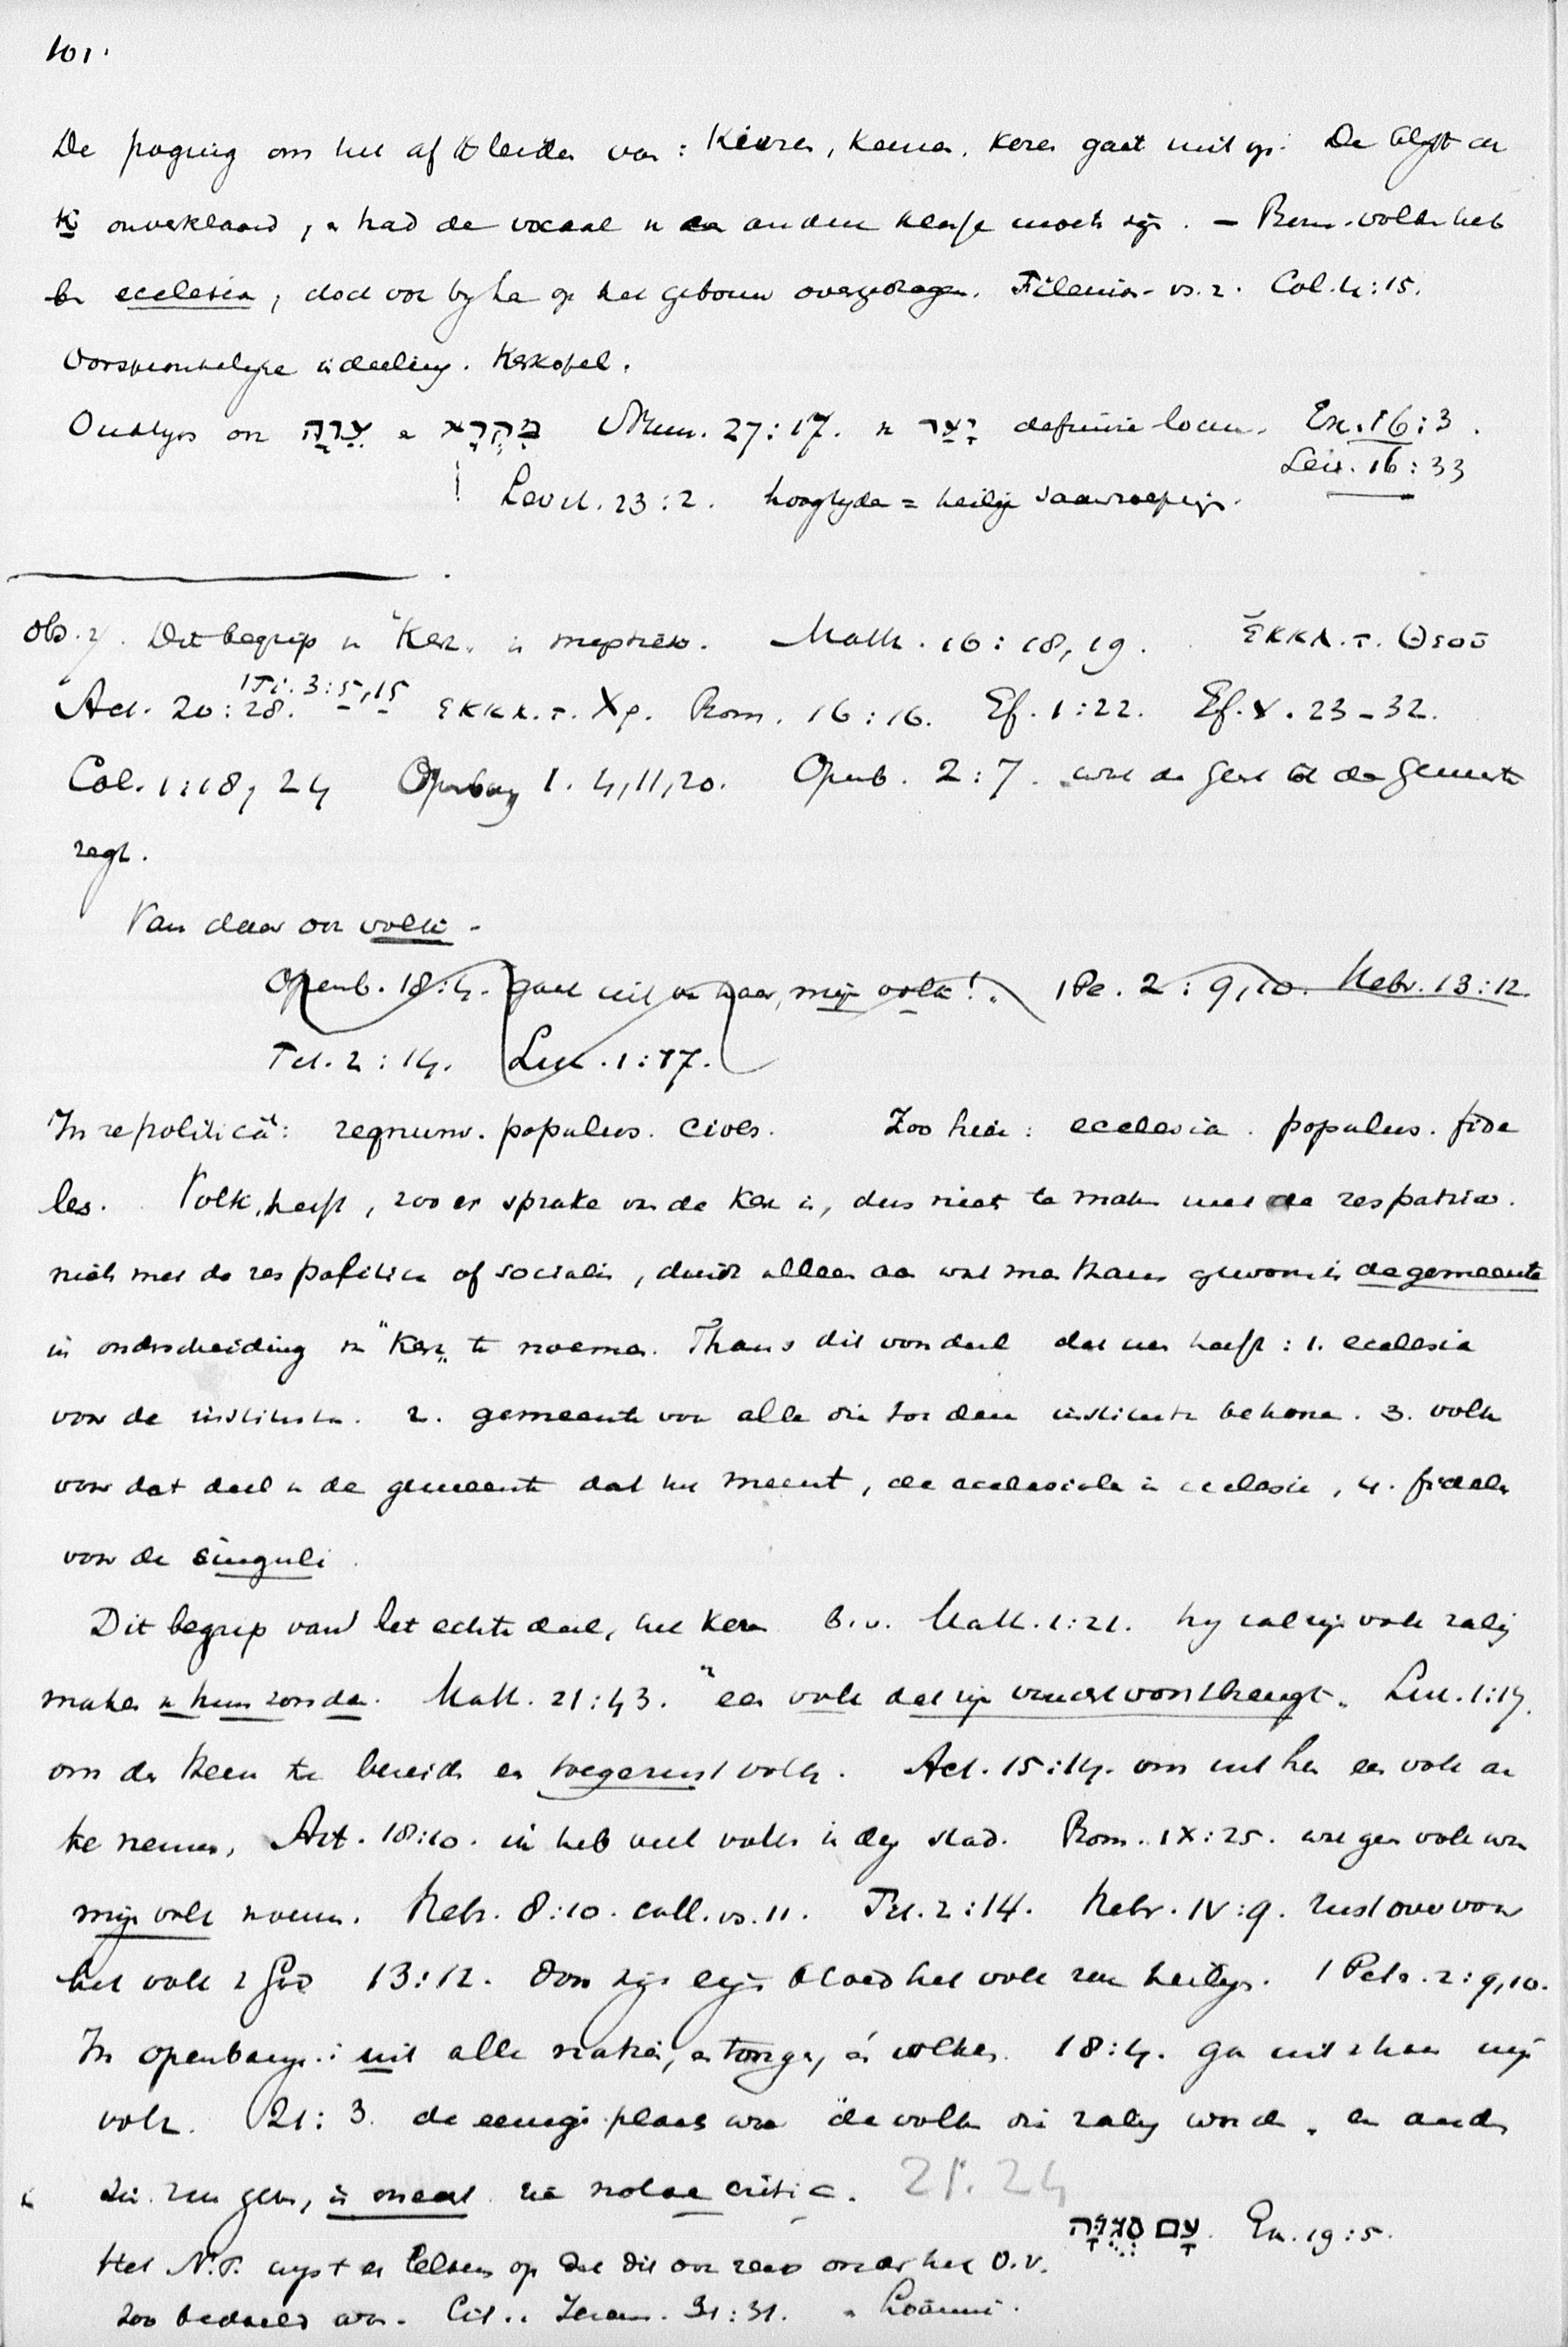 101.
De poging om het af te leiden van: Kiezen, kemen, keren gaat niet op. De blijft de
Ki onverklaard, en had de vocaal in een andere klasse moeten zijn. – Rom. volken heb
ben ecclesia, doch ook bij hen op het gebouw overgedragen. Filemon vs. 2. Col. 4:15.
Oorspronkelijke indeeling. Kerkopel.
Oudtijds ook עֵדָה en מִקְרָא Num. 27:17. definitie Ex. 16:3.
Lev. 16:33
Levit. 23:2. hoogtijden = heilige saamroeping.
Obs. 2. Dit begrip v. "Kerk" is Matth. 16:18, 19. ἐκκλ. τ. Θεοῦ
1 Ti. 3:5, 15
Act. 20:28. ἐκκλ. τ. Χρ. Rom. 16:16. Ef. 1:22. Ef. V. 23-32.
Col. 1:18, 24 Openbaring 1. 4, 11, 20. Openb. 2:7. wat de Geest tot de gemeente
zegt.
Van daar ook volk -
Openb. 18:4. gaat uit van haar, mijn volk! 1 Pe. 2:9, 10. Hebr. 13:12.
Tit. 2:14. Luk. 1:77.
In re politicâ: regnum. populus. cives. Zoo hier: ecclesia. populus. fide
les. Volk heeft, zoo er sprake van de Kerk is, dus niet te maken met de res patriae.
niet met de res politica of socialis, duidt alleen aan wat men thans gewoon is de gemeente
in onderscheiding v. "Kerk" te noemen. Thans dit voordeel dat men heeft: 1. ecclesia
voor de instituten. 2. gemeente voor alle die tot deze instituten behooren. 3. volk
voor dat deel v. de gemeente dat het meent, de ecclesiola in ecclesia, 4. fideles
voor de singuli.
Dit begrip van het echte deel, de kern b.v. Matt. 1:21. hij zal zijn volk zalig
maken v. hun zonden. Matt. 21:43. "een volk dat zijn vruchten voortbrengt". Luk. 1:17.
om den Heer te bereiden een toegerust volk. Act. 15:14. om uit hen een volk aan
te nemen, Act. 18:10. ik heb veel volks in dezen stad. Rom. IX:25. wat geen volk was
mijn volk noemen. Hebr. 8:10. coll. vs. 11. Tit. 2:14. Hebr. IV:9. rust over voor
het volk v. God 13:12. door zijn eigen bloed het volk zou heiligen. 1 Petr. 2:9, 10.
In openbaring: uit alle natiën, en tongen, en volken. 18:4. ga uit v. haar mijn
volk. 21:3. de eenige plaats waar "de volken die zalig worden" en anders
zin zou geven, is onecht. zie notae critic. 21. 24
עַם סְגֻלָּה. Ex. 19:5.
Het N.T. wijst er telkens op dat dit ook reeds onder het O.V.
zoo bedoeld was. Cit. Jerem. 31:31. Loämmi.